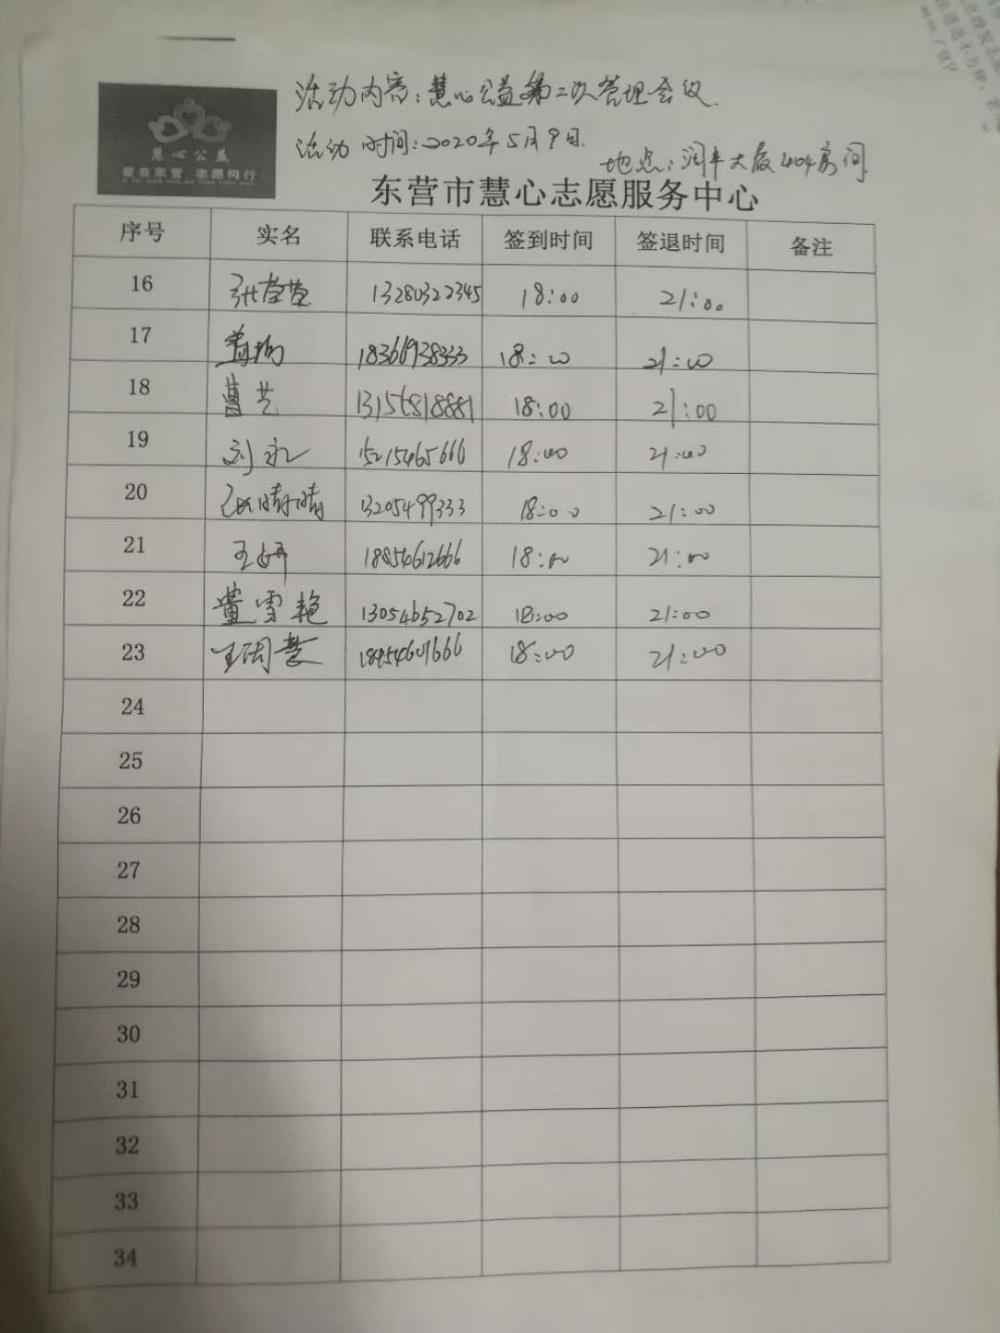 活动内容：慧心公益第二次管理会议.
活动时间：2020年5月9日.
地点：润丰大厦404房间
慧心公益
爱在东营 志愿同行
东营市慧心志愿服务中心
序号 实名 联系电话 签到时间 签退时间 备注
16 张莹莹 13280322345 18:00 21:00
17 18366938333 18:00 21:00
18 曹芸 13156818881 18:00 21:00
19 刘永 15215465666 18:00 21:00
20 张晴晴 13205499333 18:00 21:00
21 王妍 18854612666 18:00 21:00
22 董雪艳 13054652702 18:00 21:00
23 王闰慧 18:00 21:00
24
25
26
27
28
29
30
31
32
33
34